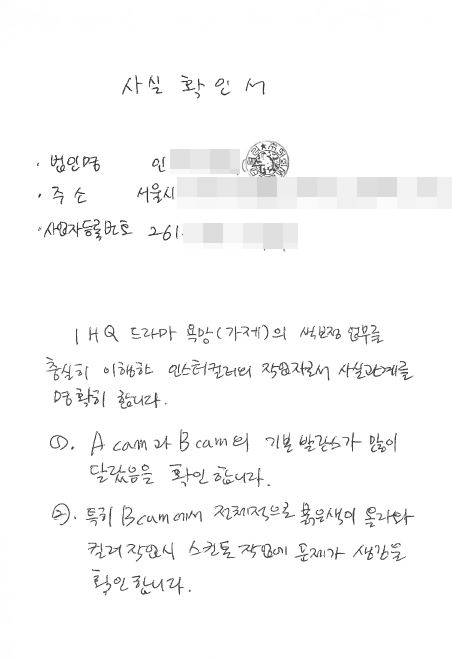 사실 확인서
· 법인명 인
· 주소 서울시
· 사업자등록번호 261
IHQ 드라마 욕망(가제)의 색보정 업무를
충실히 이행한 인스터컬러의 작업자로서 사실관계를
명확히 합니다.
①. A cam과 B cam의 기본 발란스가 많이
달랐음을 확인합니다.
②. 특히 B cam에서 전체적으로 붉은색이 올라와
컬러작업시 스킨톤 작업에 문제가 생김을
확인합니다.